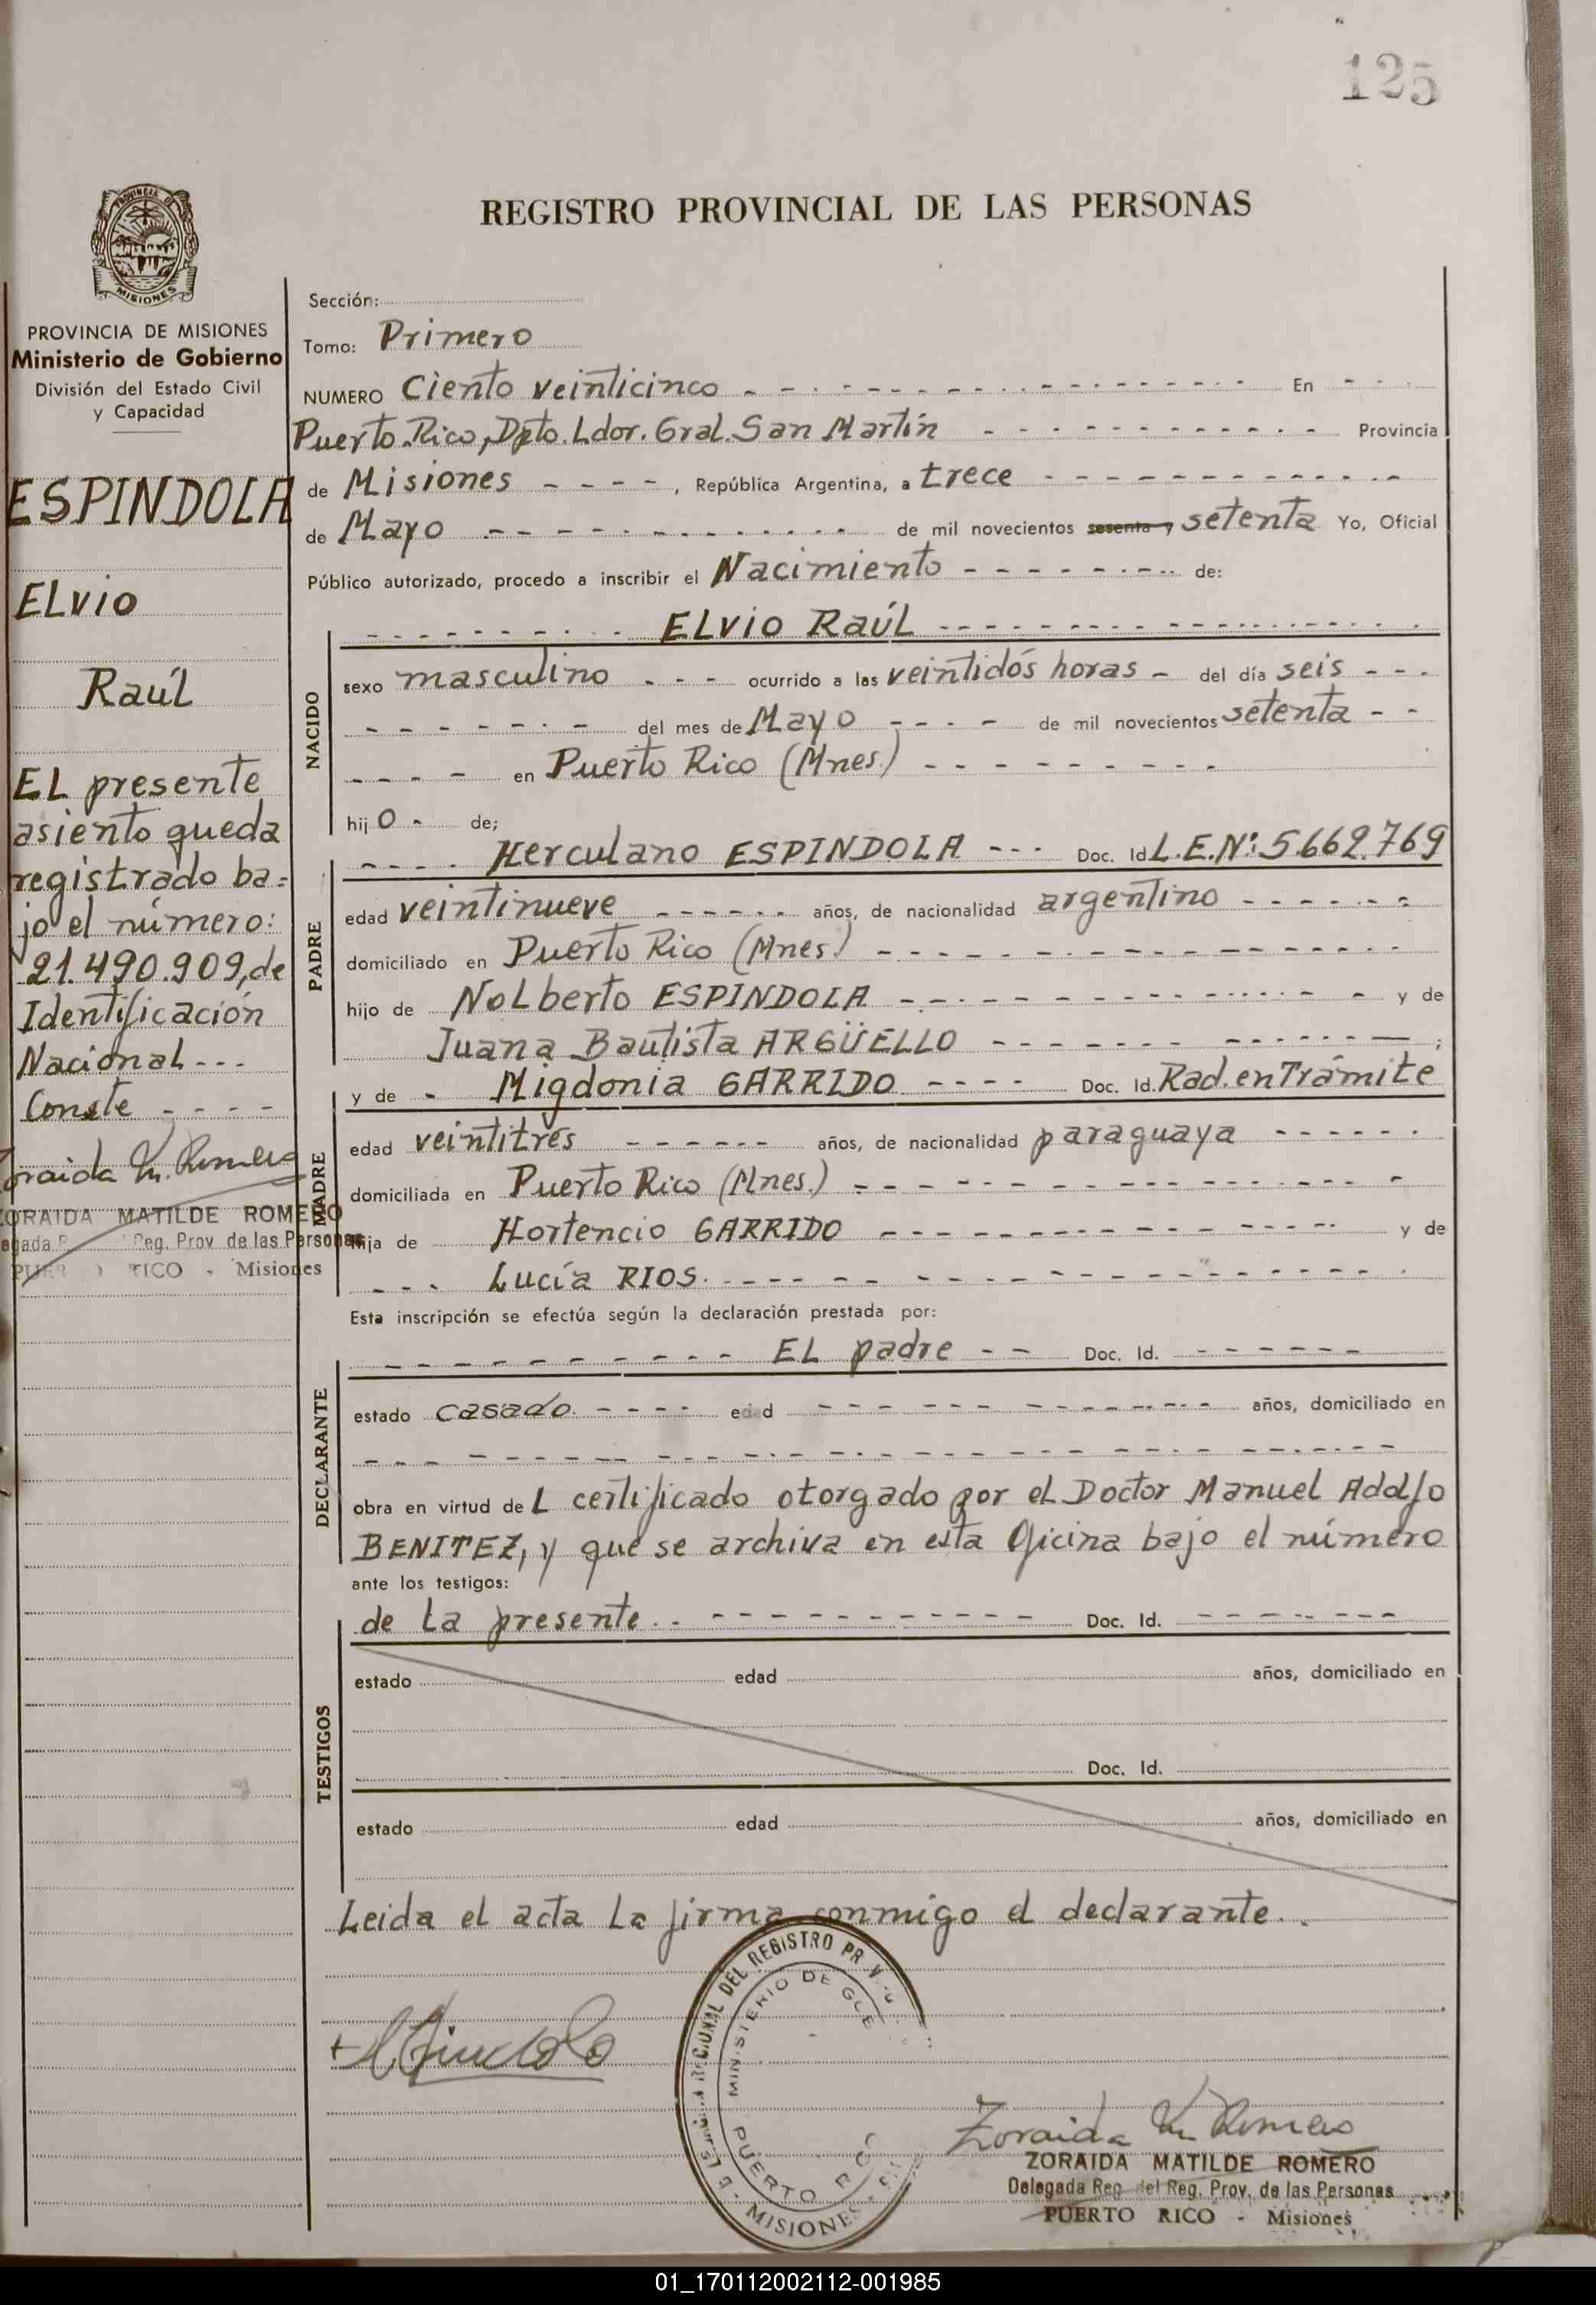 125
PROVINCIA DE
MISIONES
REGISTRO PROVINCIAL DE LAS PERSONAS
PROVINCIA DE MISIONES
Ministerio de Gobierno
División del Estado Civil
y Capacidad
ESPINDOLA
ELVIO
Raúl
EL presente
asiento queda
registrado ba=
jo el número:
21.490.909, de
Identificación
Nacional - - -
Conste - - - -
Zoraida M. Romero
ZORAIDA MATILDE ROMERO
Reg. Prov. de las Personas
RICO - Misiones
Sección:
Tomo: Primero
NUMERO Ciento veinticinco - - - En - -
Puerto Rico, Dpto. Ldor. Gral. San Martín - - - Provincia
de Misiones - - - -, República Argentina, a trece - - -
de Mayo - - - de mil novecientos sesenta y setenta Yo, Oficial
Público autorizado, procedo a inscribir el Nacimiento - - - de:
- - - ELVIO RAÚL - - -
NACIDO
sexo masculino - - - ocurrido a las veintidós horas - del día seis - - -
- - - del mes de Mayo - - - - de mil novecientos setenta - -
- - - - en Puerto Rico (Mnes.) - - -
hijo - de;
PADRE
- - - - Herculano ESPINDOLA - - - Doc. Id L.E.Nº: 5.662.769
edad veintinueve - - - años, de nacionalidad argentino - - -
domiciliado en Puerto Rico (Mnes.) - - -
hijo de NoLberto ESPINDOLA - - - y de
Juana Bautista ARGÜELLO - - - ;
MADRE
y de - Migdonia GARRIDO - - - - Doc. Id. Rad. en Trámite
edad veintitrés - - - años, de nacionalidad paraguaya - - -
domiciliada en Puerto Rico (Mnes.) - - -
hija de Hortencio GARRIDO - - - y de
- - - Lucía RIOS. - - -
Esta inscripción se efectúa según la declaración prestada por:
DECLARANTE
- - - EL padre - - Doc. Id. - - -
estado casado. - - - - edad - - - años, domiciliado en
- - -
obra en virtud de L certificado otorgado por el Doctor Manuel Adolfo
BENITEZ, y que se archiva en esta Oficina bajo el número
ante los testigos:
de La presente. - - - Doc. Id. - - -
TESTIGOS
estado edad años, domiciliado en
Doc. Id.
estado edad años, domiciliado en
Leida el acta La firma conmigo el declarante.
DEL REGISTRO
MINISTERIO DE
PUERTO
MISIONES
Zoraida M. Romero
ZORAIDA MATILDE ROMERO
Delegada Reg. del Reg. Prov. de las Personas
PUERTO RICO - Misiones
01_170112002112-001985